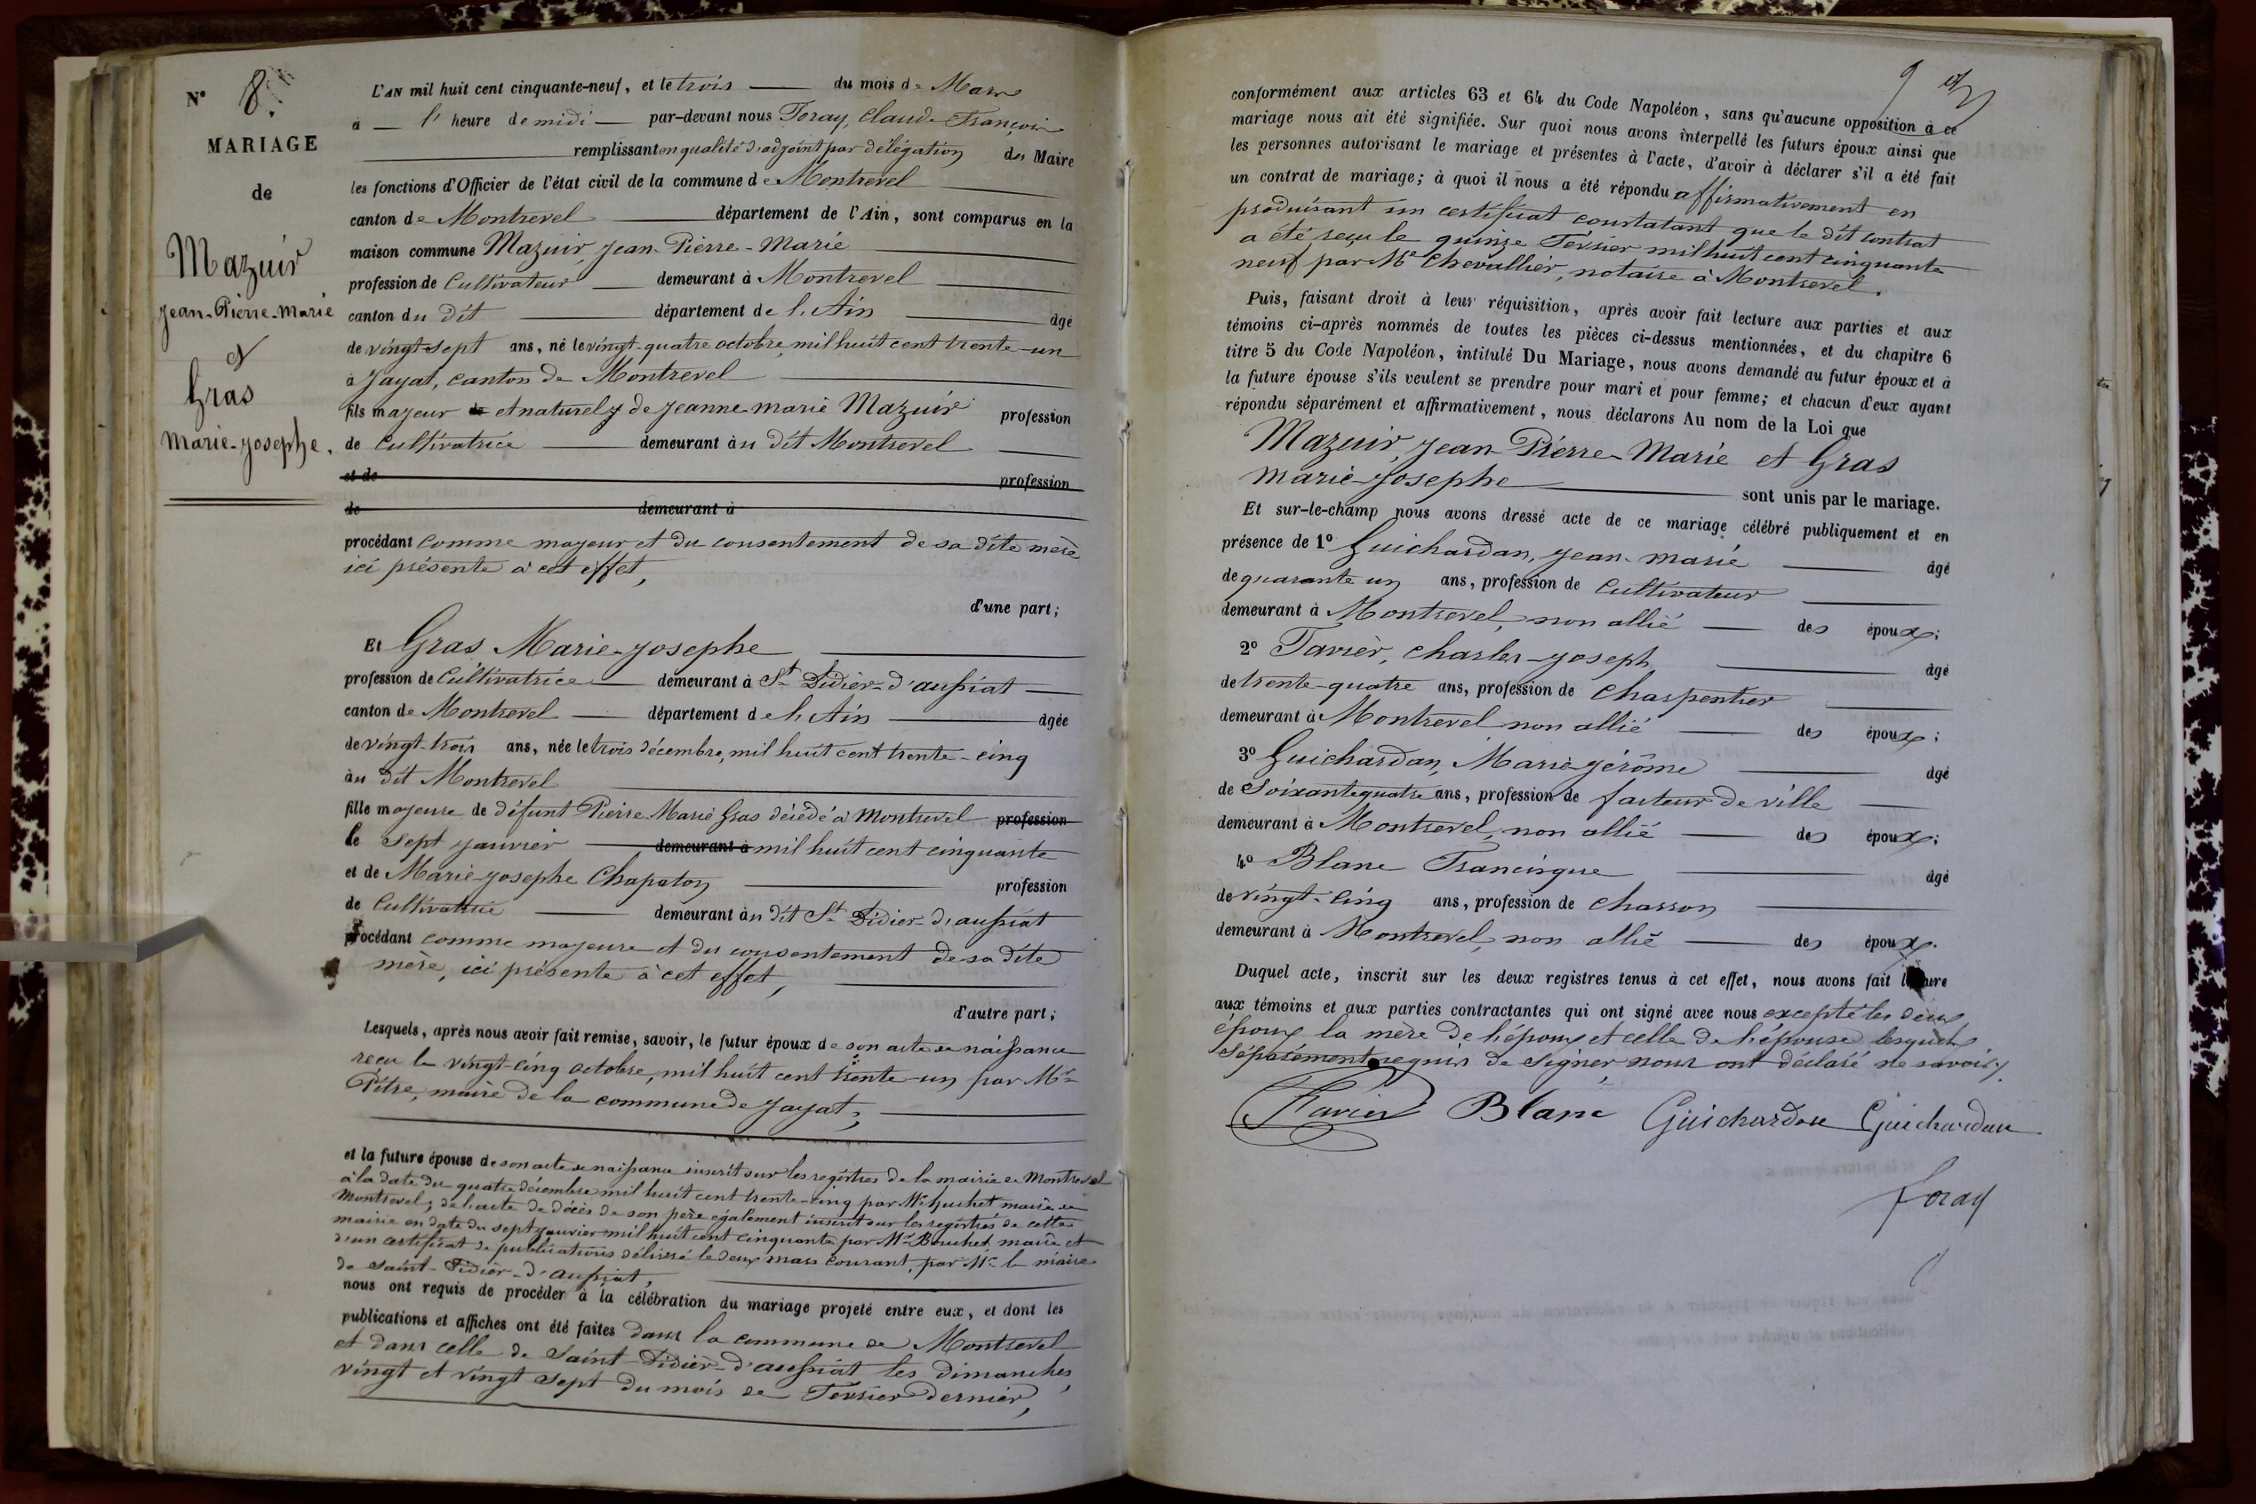 N° 8.
MARIAGE
de
Mazuir
Jean-Pierre-Marie
et
Gras
Marie-Josephe.
L'AN mil huit cent cinquante-neuf, et le trois du mois de Mars
à l' heure de midi par-devant nous Foray, Claude François
remplissant en qualité d'adjoint par délégation du Maire
les fonctions d'Officier de l'état civil de la commune de Montrevel
canton de Montrevel département de l'Ain, sont comparus en la
maison commune Mazuir, Jean-Pierre-Marie
profession de Cultivateur demeurant à Montrevel
canton du dit département de l'Ain âgé
de vingt-sept ans, né le vingt-quatre octobre, mil huit cent trente-un
à Jayat, canton de Montrevel
fils majeur de et naturel de Jeanne Marie Mazuir profession
de Cultivatrice demeurant au dit Montrevel
et de profession
de demeurant à
procédant comme majeur et du consentement de sa dite mère
ici présente à cet effet,
d'une part;
Et Gras Marie-Josephe
profession de Cultivatrice demeurant à St Didier-d'aussiat
canton de Montrevel département de l'Ain âgée
de vingt-trois ans, née le trois décembre, mil huit cent trente-cinq
au dit Montrevel
fille majeure de défunt Pierre Marie Gras décédé à Montrevel profession
le sept janvier demeurant à mil huit cent cinquante
et de Marie-Josephe Chapaton profession
de Cultivatrice demeurant au dit St Didier-d'aussiat
procédant comme majeure et du consentement de sa dite
mère, ici présente à cet effet,
d'autre part;
Lesquels, après nous avoir fait remise, savoir, le futur époux de son acte de naissance
reçu le vingt-cinq octobre, mil huit cent trente-un par Mr
Pitre, maire de la commune de Jayat,
et la future épouse de son acte de naissance inscrit sur les registres de la mairie de Montrevel
à la date du quatre décembre mil huit cent trente-cinq par Mr maire de
Montrevel; de l'acte de décès de son père également inscrit sur les registres de cette
mairie en date du sept janvier mil huit cent cinquante par Mr Bouchet maire et
d'un certificat de publications délivré le deux mars courant, par Mr le maire
de Saint-Didier-d'aussiat,
nous ont requis de procéder à la célébration du mariage projeté entre eux, et dont les
publications et affiches ont été faites dans la commune de Montrevel
et dans celle de Saint-Didier-d'aussiat les dimanches
vingt et vingt sept du mois de Février dernier,
9
conformément aux articles 63 et 64 du Code Napoléon, sans qu'aucune opposition à ce
mariage nous ait été signifiée. Sur quoi nous avons interpellé les futurs époux ainsi que
les personnes autorisant le mariage et présentes à l'acte, d'avoir à déclarer s'il a été fait
un contrat de mariage; à quoi il nous a été répondu affirmativement en
produisant un certificat constatant que le dit contrat
a été reçu le quinze Février mil huit cent cinquante
neuf par Me Chevallier, notaire à Montrevel.
Puis, faisant droit à leur réquisition, après avoir fait lecture aux parties et aux
témoins ci-après nommés de toutes les pièces ci-dessus mentionnées, et du chapitre 6
titre 5 du Code Napoléon, intitulé Du Mariage, nous avons demandé au futur époux et à
la future épouse s'ils veulent se prendre pour mari et pour femme; et chacun d'eux ayant
répondu séparément et affirmativement, nous déclarons Au nom de la Loi que
Mazuir, Jean-Pierre-Marie et Gras
Marie-Josephe sont unis par le mariage.
Et sur-le-champ nous avons dressé acte de ce mariage célébré publiquement et en
présence de 1° Guichardan, Jean-Marie âgé
de quarante un ans, profession de Cultivateur
demeurant à Montrevel, non allié des époux;
2° Favier, Charles-Joseph âgé
de trente-quatre ans, profession de Charpentier
demeurant à Montrevel non allié des époux;
3° Guichardan, Marie-Jérôme âgé
de Soixante quatre ans, profession de facteur de ville
demeurant à Montrevel, non allié des époux;
4° Blanc Francisque âgé
de vingt-cinq ans, profession de Charron
demeurant à Montrevel, non allié des époux.
Duquel acte, inscrit sur les deux registres tenus à cet effet, nous avons fait lecture
aux témoins et aux parties contractantes qui ont signé avec nous excepté les deux
époux la mère de l'époux et celle de l'épouse lesquels
séparément requis de signer nous ont déclaré ne savoir.
Favier Blanc Guichardan Guichardan
Foray